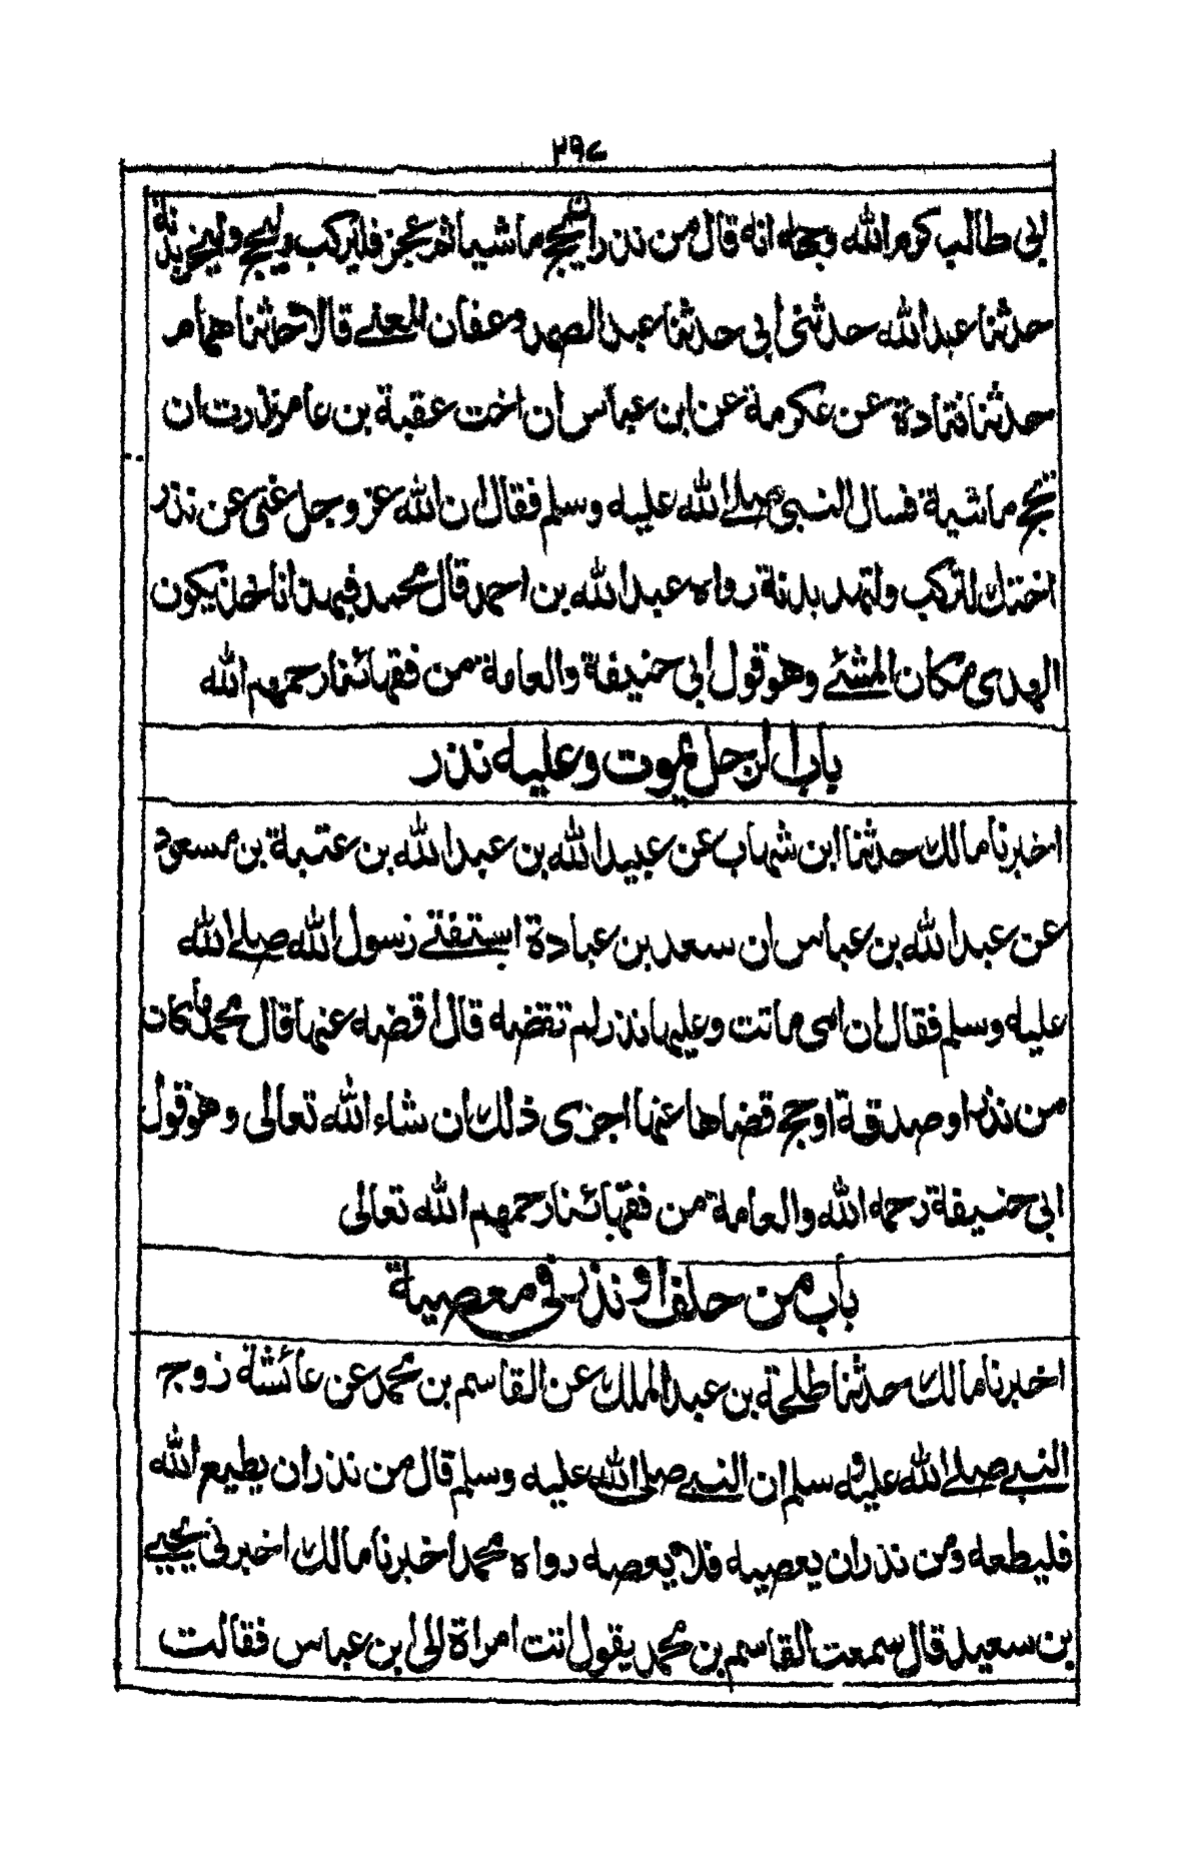 ٢٩٤
ابى طالب كرم الله وجهه انه قال من نذر ان يحج ماشيا ثم عجز فليركب وليحج ولينحر بدنة
حدثنا عبد الله حدثنى ابى حدثنا عبد الصمد وعفان المعنى قالا حدثنا همام
حدثنا قتادة عن عكرمة عن ابن عباس ان اخت عقبة بن عامر نذرت ان
تحج ماشية فسال النبى صلى الله عليه وسلم فقال ان الله عز وجل غنى عن نذر
اختك لتركب ولتهد بدنة رواه عبد الله بن احمد قال محمد فبهذا ناخذ يكون
الهدى مكان المشى وهو قول ابى حنيفة والعامة من فقهائنا رحمهم الله
باب الرجل يموت وعليه نذر
اخبرنا مالك حدثنا ابن شهاب عن عبيد الله بن عبد الله بن عتبة بن مسعود
عن عبد الله بن عباس ان سعد بن عبادة استفتى رسول الله صلى الله
عليه وسلم فقال ان امى ماتت وعليها نذر لم تقضه قال اقضه عنها قال محمد ما كان
من نذر او صدقة او حج قضاها عنها اجزى ذلك ان شاء الله تعالى وهو قول
ابى حنيفة رحمه الله والعامة من فقهائنا رحمهم الله تعالى
باب من حلف او نذر فى معصية
اخبرنا مالك حدثنا طلحة بن عبد الملك عن القاسم بن محمد عن عائشة زوج
النبى صلى الله عليه وسلم ان النبى صلى الله عليه وسلم قال من نذر ان يطيع الله
فليطعه ومن نذر ان يعصيه فلا يعصه رواه محمد اخبرنا مالك اخبرنى يحيى
بن سعيد قال سمعت القاسم بن محمد يقول اتت امراة الى ابن عباس فقالت